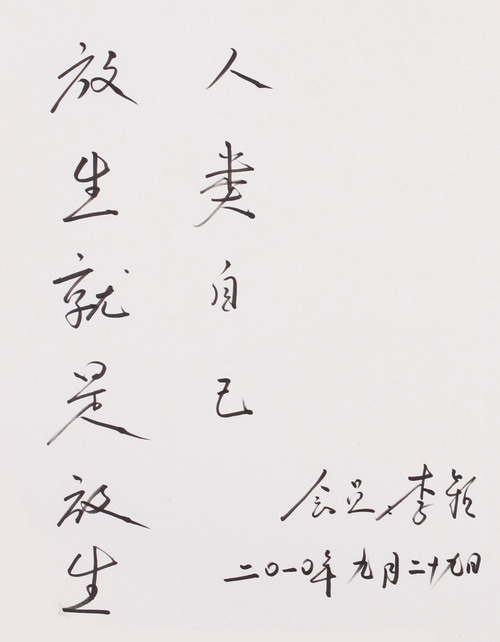 放生就是放生
人类自己
会员李颖
二〇一〇年九月二十九日